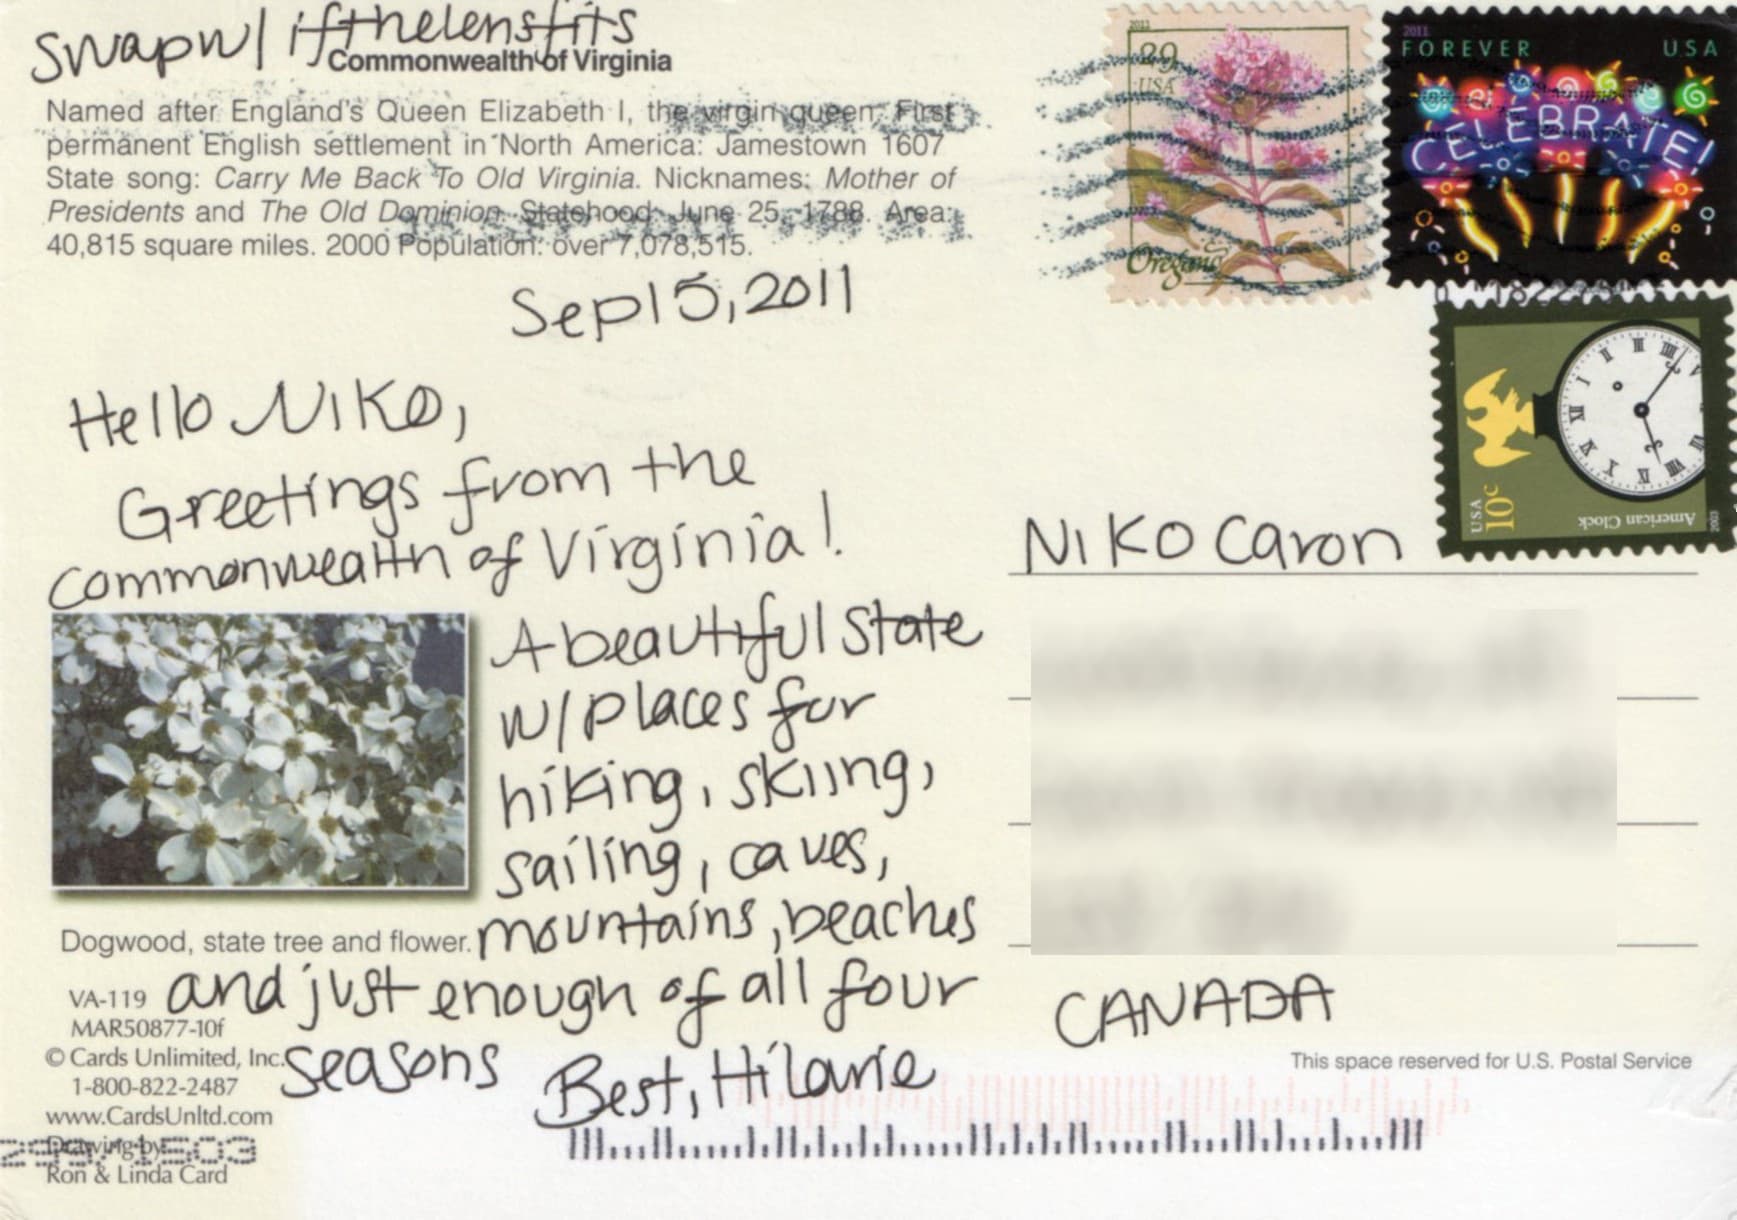 swap w/ ifthelensfits
Commonwealth of Virginia
Named after England's Queen Elizabeth I, the virgin queen. First
permanent English settlement in North America: Jamestown 1607
State song: Carry Me Back To Old Virginia. Nicknames: Mother of
Presidents and The Old Dominion. Statehood: June 25, 1788. Area:
40,815 square miles. 2000 Population: over 7,078,515.
Sep 15, 2011
Hello Niko,
Greetings from the
Commonwealth of Virginia!
A beautiful state
w/ places for
hiking, skiing,
sailing, caves,
mountains, beaches
and just enough of all four
seasons
Best, Hilarie
Dogwood, state tree and flower.
VA-119
MAR50877-10f
© Cards Unlimited, Inc.
1-800-822-2487
www.CardsUnltd.com
Drawing by
Ron & Linda Card
2011
29
USA
Oregano
2011
FOREVER USA
CELEBRATE!
USA
10c
American Clock
2003
Niko Caron
CANADA
This space reserved for U.S. Postal Service